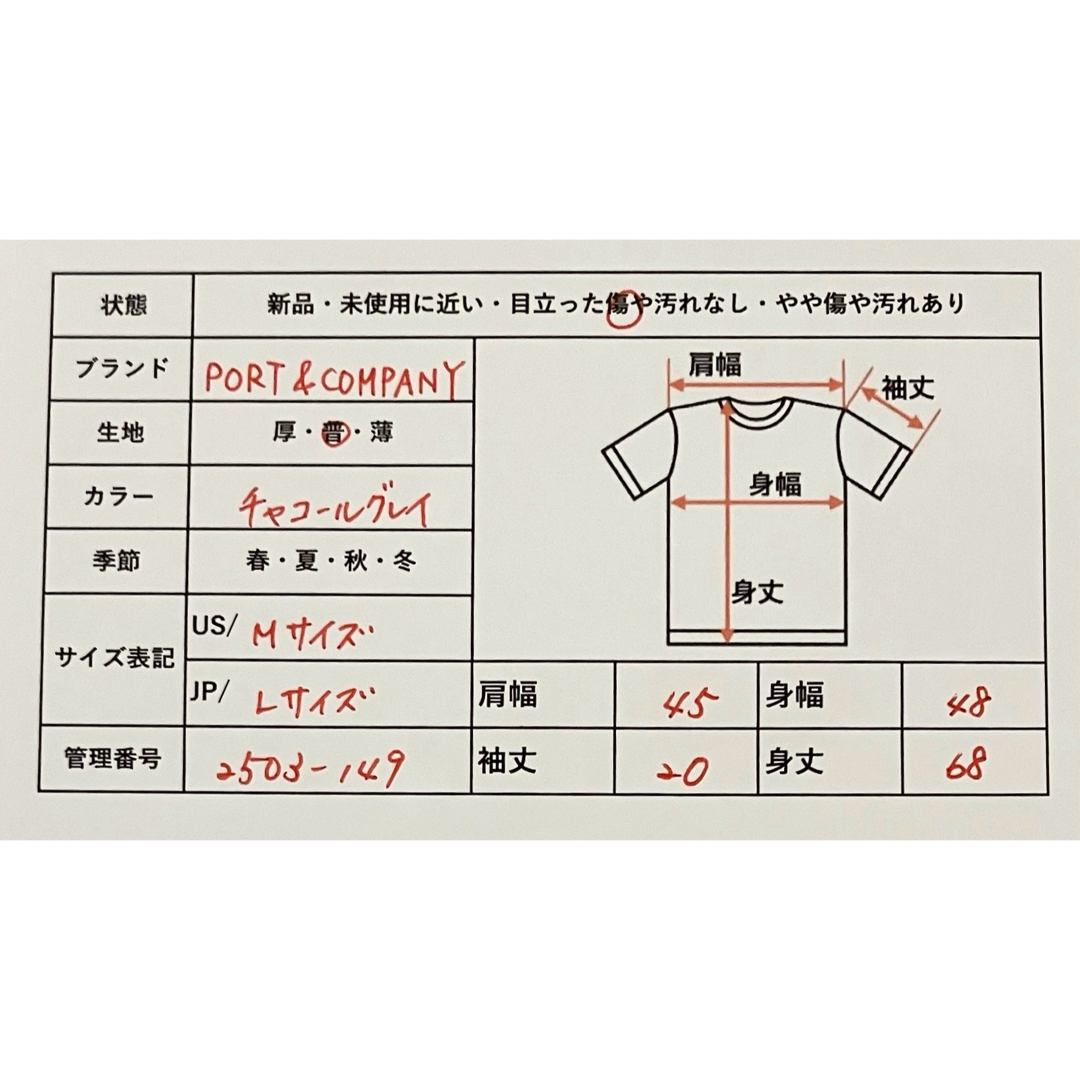 状態 新品・未使用に近い・目立った傷や汚れなし・やや傷や汚れあり
ブランド PORT & COMPANY
生地 厚・普・薄
カラー チャコールグレイ
季節 春・夏・秋・冬
サイズ表記
US/ Mサイズ
JP/ Lサイズ
管理番号 2503-149
肩幅
袖丈
身幅
身丈
肩幅 45 身幅 48
袖丈 20 身丈 68